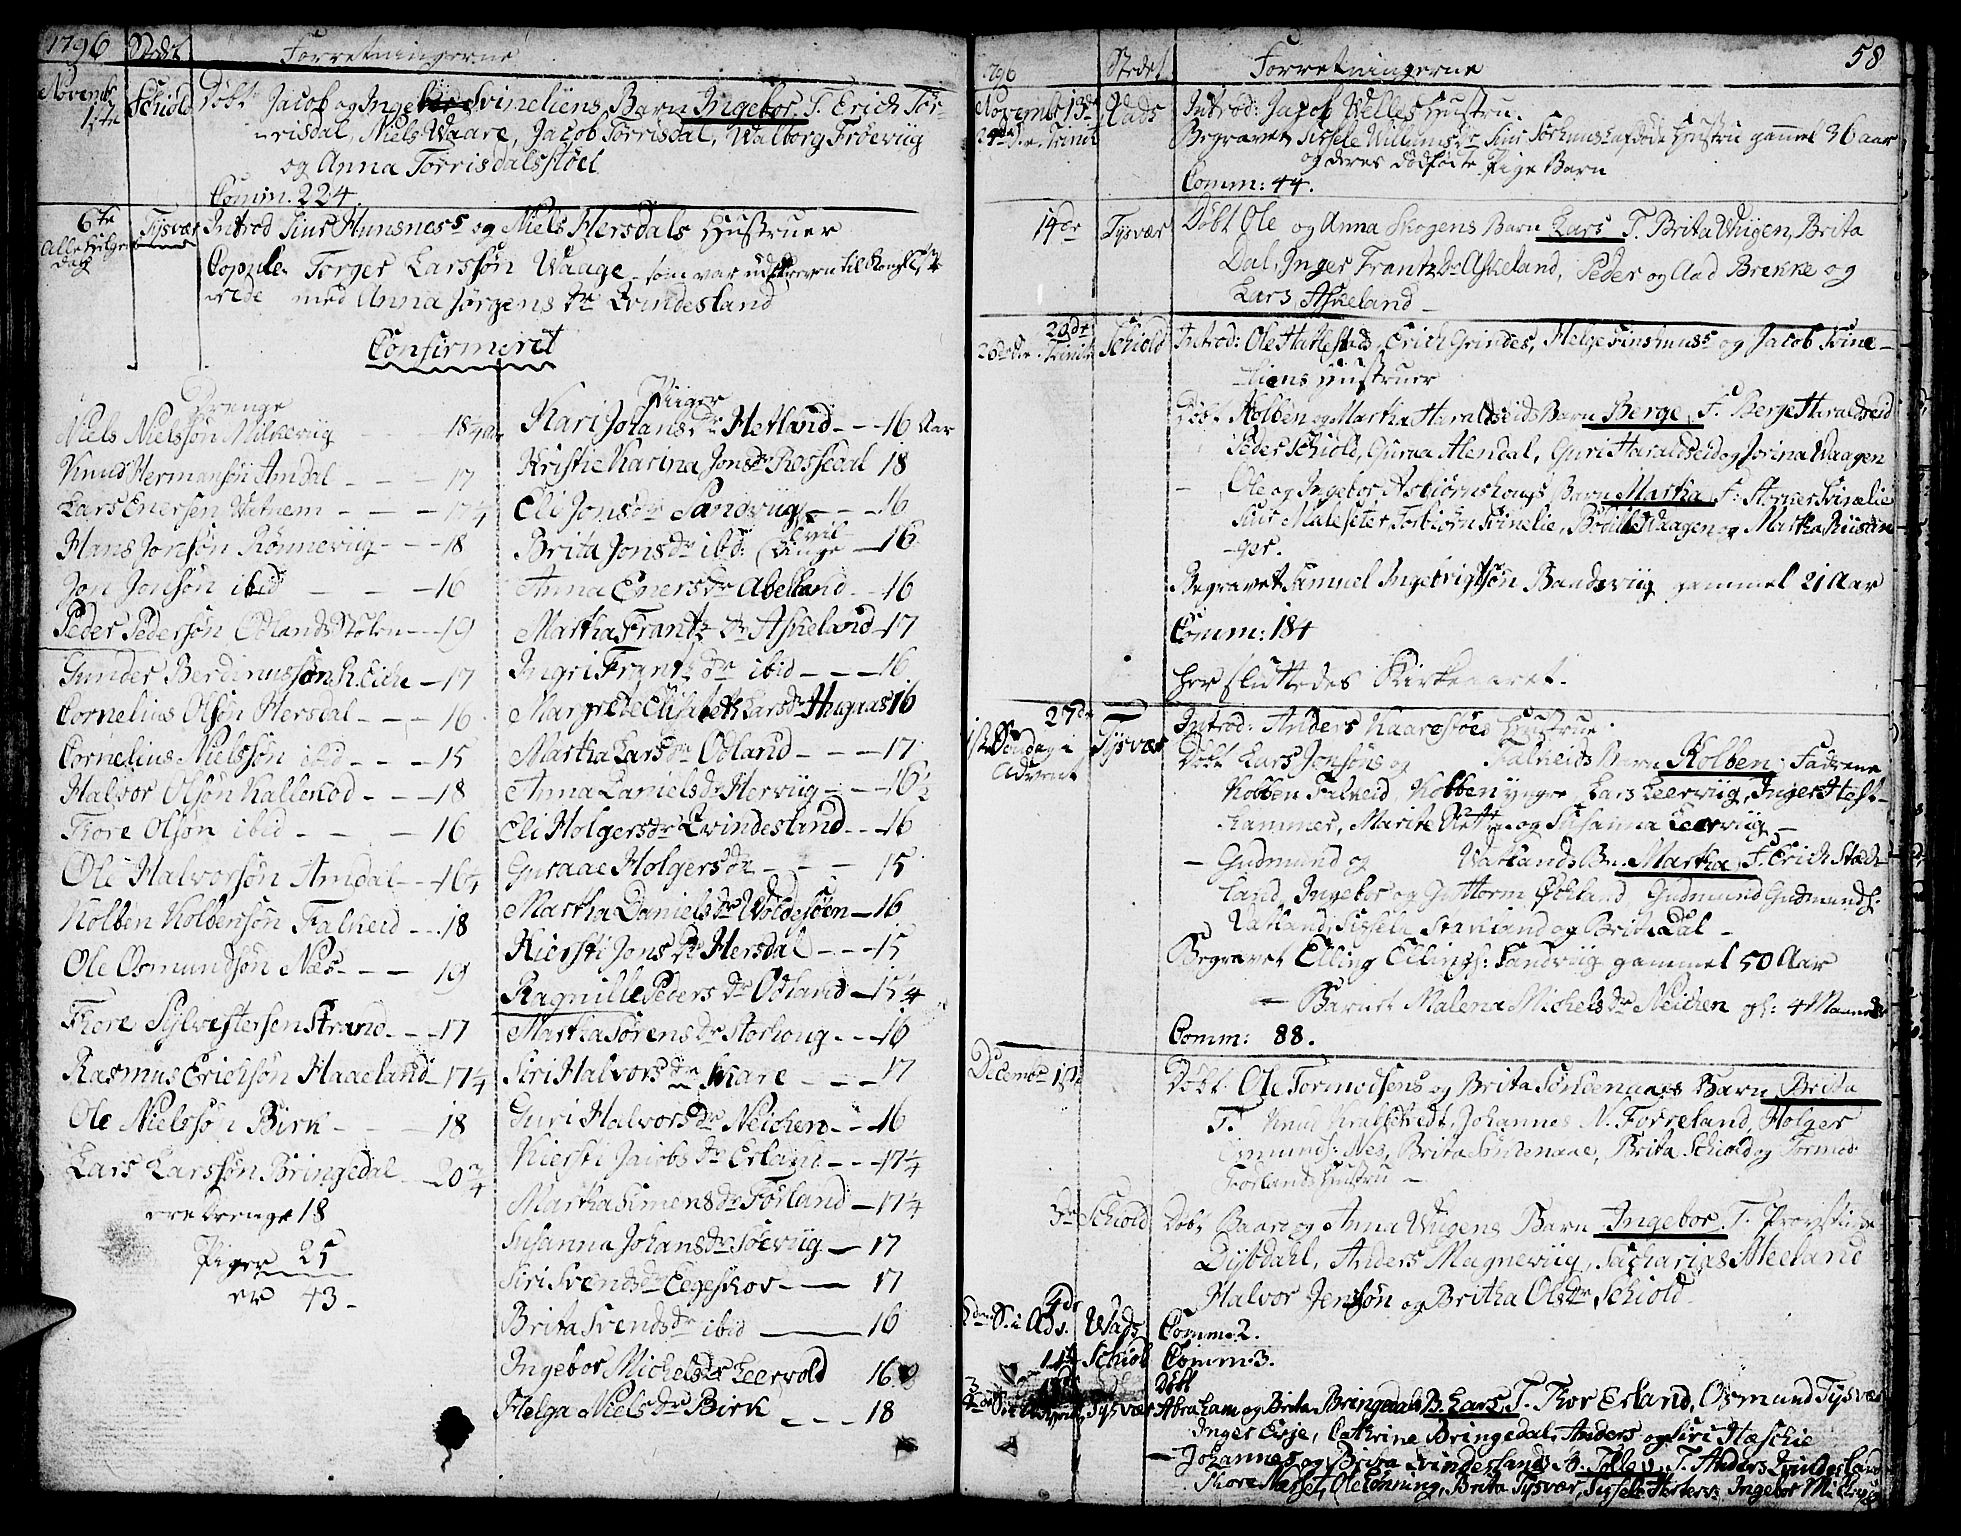 1796 Stedet Forretningerne
Novemb: 1ste Schiold Døbt Jacob og Ingebor Svineliens Barn Ingebor. T. Erich Tør-
risdal, Niels Waare, Jacob Torrisdal, Walborg Frøeviig
og Anna Torrisdalsstøel
Comm. 224
6te Tysvær Introd Siur Hunsness og Niels Hersdals Hustruer
Alle Helgens Dag
Copule: Torger Larssøn Waage som var udskreven til
med Anna Jørgens Dr Qvindesland
Confirmeret
Drenge
Niels Nielssøn Milkeviig 18¼ aar
Knud Hermansøn Amdal 17
Lars Enersen Vatnem 17¼
Hans Jonssøn Rønneviig 18
Jon Jonsøn ibid 16
Peder Pedersøn Odlands Stølen 19
Gunder Berdinussøn R. Eiche 17
Cornelius Olsøn Hersdal 16
Cornelius Nielssøn ibid 15
Halvor Olsøn Kallekod 18
Thore Olsøn ibid 16
Ole Halvorsøn Amdal 16¼
Kolben Kolbensøn Falkeid 18
Ole Osmundsøn Næs 19
Thore Sylvestersen Strand 17
Rasmus Ericksøn Haaeland 17¼
Ole Nielssøn Birk 18
Lars Larssøn Bringedal 20¾
ere Drenge 18
Piger 25
er 43
Piiger
Kari Johans Dr Hetland 16 Aar
Kristie Karina Jons Dr Rossedal 18
Eli Jons Dr Sandviig 16
Brita Jons Dr ibd: 16
Anna Eners Dr Abelland 16
Martha Frantz Dr Askeland 17
Ingri Frantz Dr ibid 16
Margrete Elisabeth Lars Dr Hugaas 16
Martha Lars Dr Odland 17
Anna Daniels Dr Herviig 16½
Eli Holgers Dr Qvindesland 16
Guraae Holgers Dr 15
Martha Daniels Dr Woldesøen 16
Kiersti Jons Dr Hersdal 15
Ragnille Peders Dr Odland 15¼
Martha Sørens Dr Storhoug 16
Siri Halvors Dr Kare 17
Guri Halvors Dr Neichen 16
Kiersti Jacobs Dr Erland 17¼
Martha Simens Dr Førland 17¼
Susanna Johans Dr Søeviig 17
Siri Svends Dr Eegeskov 17
Brita Svends Dr ibid 16
Ingebor Michels Dr Leervold 16
Helga Niels Dr Birk 18
1796 Stedet Forretningerne 58
Novemb 13de Vads Introd: Jacob Welles Hustru.
24de S. e. Trinit Begravet Sissele Willums Dr Siur afdøde Hustru gammel 36 aar
og deres dødfødte Pige Barn
Comm: 44.
14de Tysvær Døbt Ole og Anna Skogens Barn Lars T. Brita Viigen, Brita
Dal, Inger Frantz Dr Askeland, Peder og Aad Brekke og
Lars Askeland
20de Schiold Introd: Ole Hatlestad, Erich Grindes, Helge og Jacob Svine-
Trinit liens Hustruer
Døbt Kolben og Martha Haraldseids Barn Berge, F. Berje Haraldseid
Peder Schiold, Guraa Alendal, Guri Haraldseid og Jorina Waagen
Ole og Ingebor Barn Martha F: Svinelie
Siur Maleseter, Torbiørn Svinelie, Waagen og Martha
-ger.
Begravet Samuel Ingebrigtsøn Bandeviig gammel 21 Aar
Comm: 184
Her sluttedes Kirkeaaret.
27de Tysvær Introd: Anders Kaarestøes Hustrue
1ste Søndag i Advent Døbt Lars Jonsøns og Falkeids Barn Kolben, Faddrene
Kolben Falkeid, Kolben yngre, Lars Leerviig, Inger Hest-
hammer, Marite og Susanna Leerviig
Gudmund og Vatlands Bn. Martha. F. Erich
land, Ingebor og Guttorm Østland, Gudmund Gudmunds:
Vatland, Sissele og Brite Dal
Begravet Elling Ellings: Sandviig gammel 50 Aar
Barnet Malena Michels Dr Neichen gl: 4 Maaneder
Comm: 88.
Decembr 1ste Døbt Ole Tormodsens og Brita Barn Brita
T. Knud, Johannes N. Forreland, Holger
Nes, Brita, Brita Schiold og Tormod
Førlands Hustru
3de Schiold Døbt Baar og Anna Viigens Barn Ingebor. T. Provstinde
Dybdahl, Anders Magneviig, Sacharias Meeland
Halvor Jenssøn og Britha Ols Dr Schiold
4de Vads Comm. 2.
2den S. i Adv.
11te Schiold Comm. 3.
Døbt
Tysvær Abraham og Brita Bringedals B. Lars. T. Thor Erland, Osmund Tysvær
Inger Eije, Cathrine Bringedal, Anders og Siri Hæschie
Johannes og Brita Qvindeslands B. Tollev, T. Anders Qvindesland
Thore, Ole, Brita Tysvær, Sissele, Ingebor